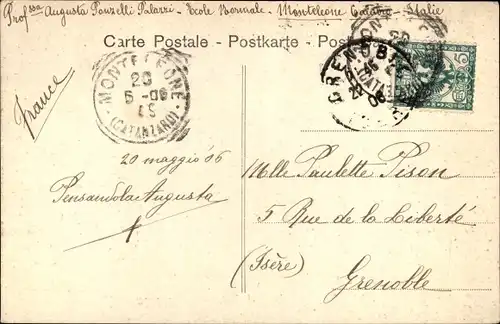 Prof.ssa Augusta Ponzelli Palazzi - Ecole Normale - Monteleone Calabro - Italie
Carte Postale - Postkarte - Post
France
MONTELEONE
20
5 - 06
(CATANZARO)
GRENOBLE
20 maggio 06
Pensandola Augusta
Mlle Paulette Pison
5 Rue de la Liberté
(Isère)
Grenoble